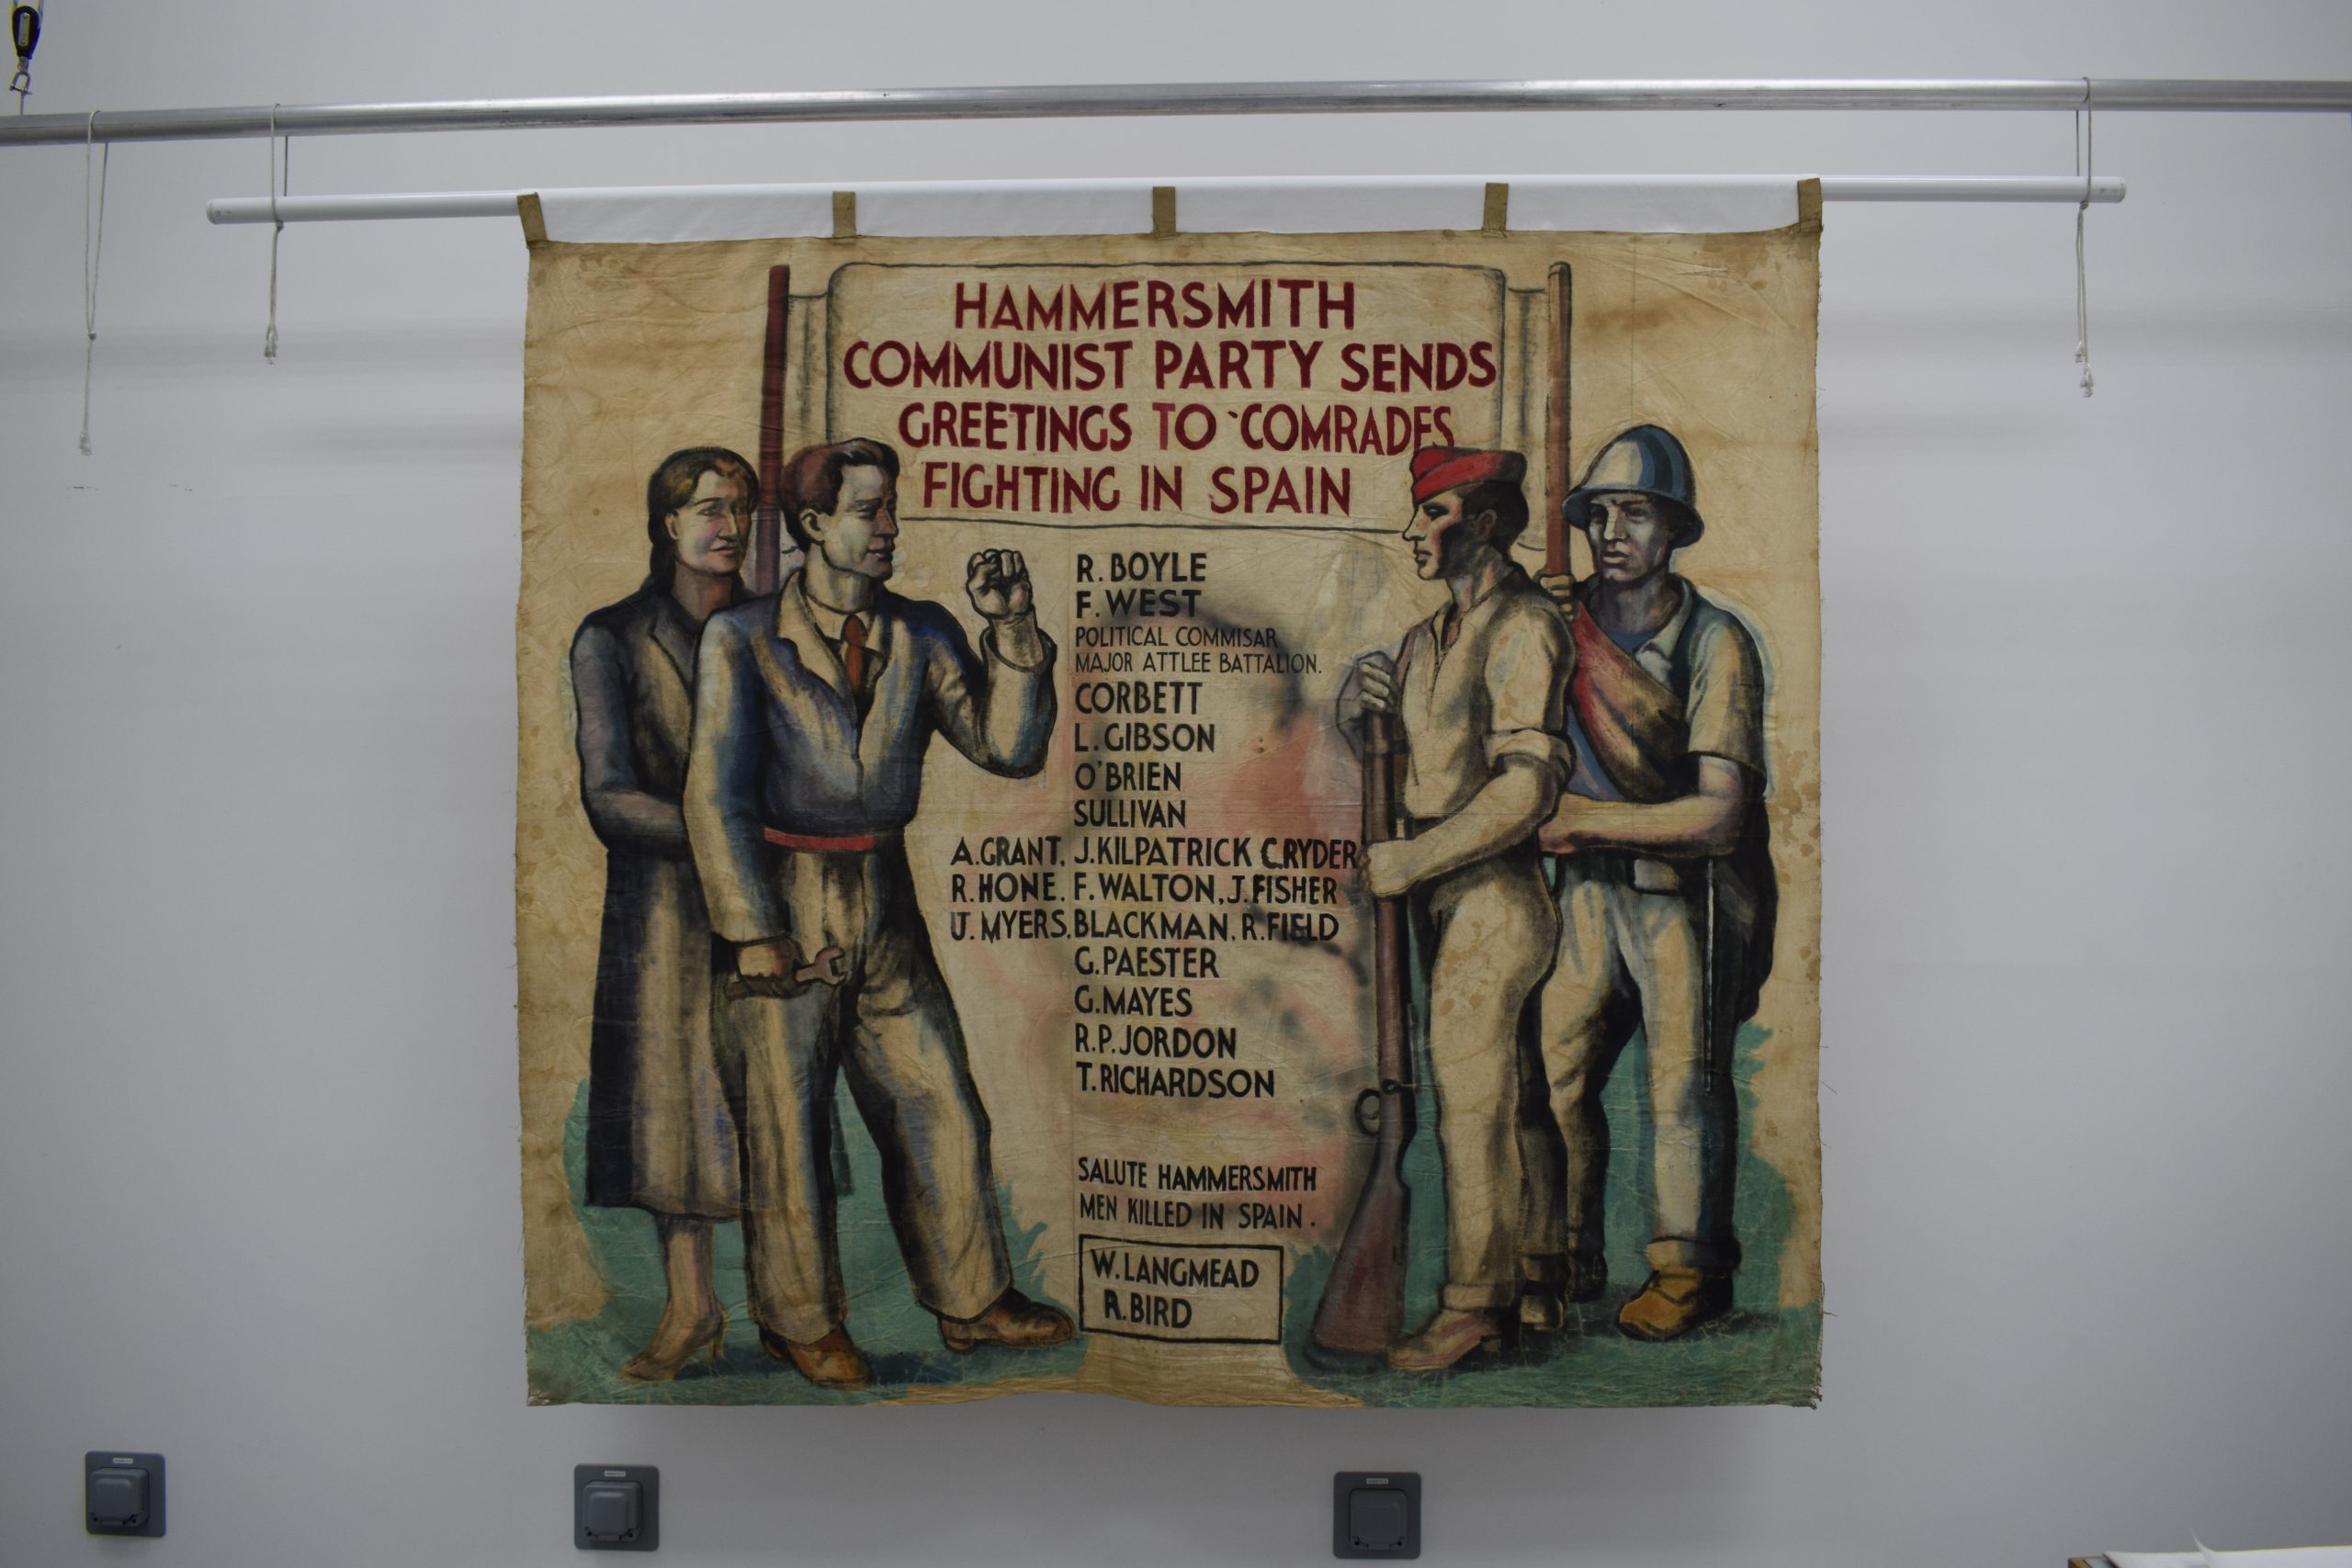 HAMMERSMITH
COMMUNIST PARTY SENDS
GREETINGS TO COMRADES
FIGHTING IN SPAIN
R. BOYLE
F. WEST
POLITICAL COMMISAR
MAJOR ATTLEE BATTALION.
CORBETT
L. GIBSON
O'BRIEN
SULLIVAN
A. GRANT. J. KILPATRICK C. RYDER
R. HONE. F. WALTON, J. FISHER
J. MYERS. BLACKMAN. R. FIELD
G. PAESTER
G. MAYES
R.P. JORDON
T. RICHARDSON
SALUTE HAMMERSMITH
MEN KILLED IN SPAIN.
W. LANGMEAD
R. BIRD